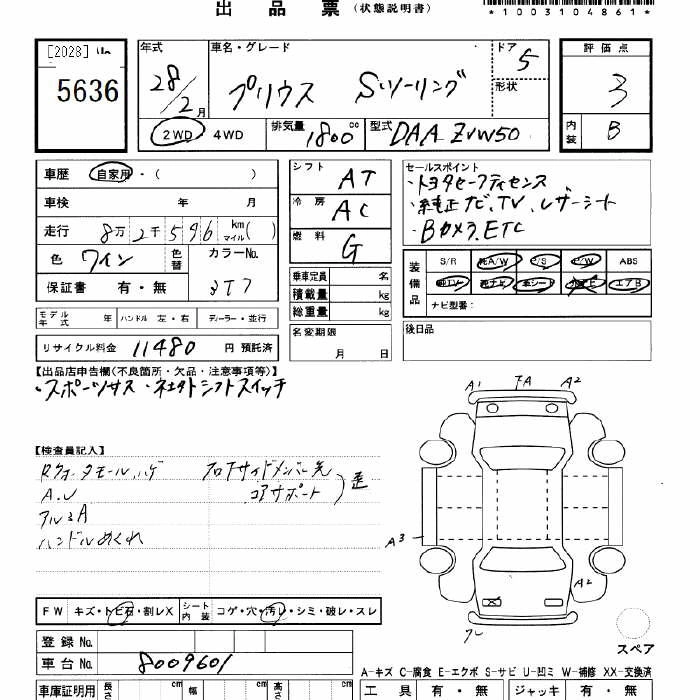 出品票(状態説明書)
*1003104861*
[2028]
5636
年式
28/2月
車名・グレード
プリウス Sツーリング
ドア
5
形状
2WD 4WD
排気量 1800 cc
型式 DAA ZVW50
評価点
3
内装 B
車歴 自家用・( )
車検 年 月
走行 8万2千596 km マイル( )
色 ワイン 色替 カラーNo.
保証書 有・無 3T7
シフト AT
冷房 AC
燃料 G
乗車定員 名
積載量 kg
総重量 kg
名変期限
月 日
セールスポイント
・トヨタセーフティセンス
・純正ナビ、TV、レザーシート
・Bカメラ、ETC
装備品
S/R 純A/W P/S P/W ABS
純TV 純ナビ 革シート エアB
ナビ型番:
後日品
モデル年式 年 ハンドル 左・右 ディーラー・並行
リサイクル料金 11480 円 預託済
【出品店申告欄(不良箇所・欠品・注意事項等)】
・スポーツサス
シフトスイッチ
【検査員記入】
Rクォータモール、ハゲ
A.U
アルミA
ハンドルめくれ
フロアサイドメンバー先
コアサポート
歪
A1 FA A2
A3
A2
FW キズ・トビ石・割レX シート内装 コゲ・穴・汚レ・シミ・破レ・スレ
スペア
登録 No.
車台 No. 8009601
A-キズ C-腐食 E-エクボ S-サビ U-凹ミ W-補修 XX-交換済
車庫証明用 長さ cm 幅 cm 高さ cm
工具 有・無 ジャッキ 有・無